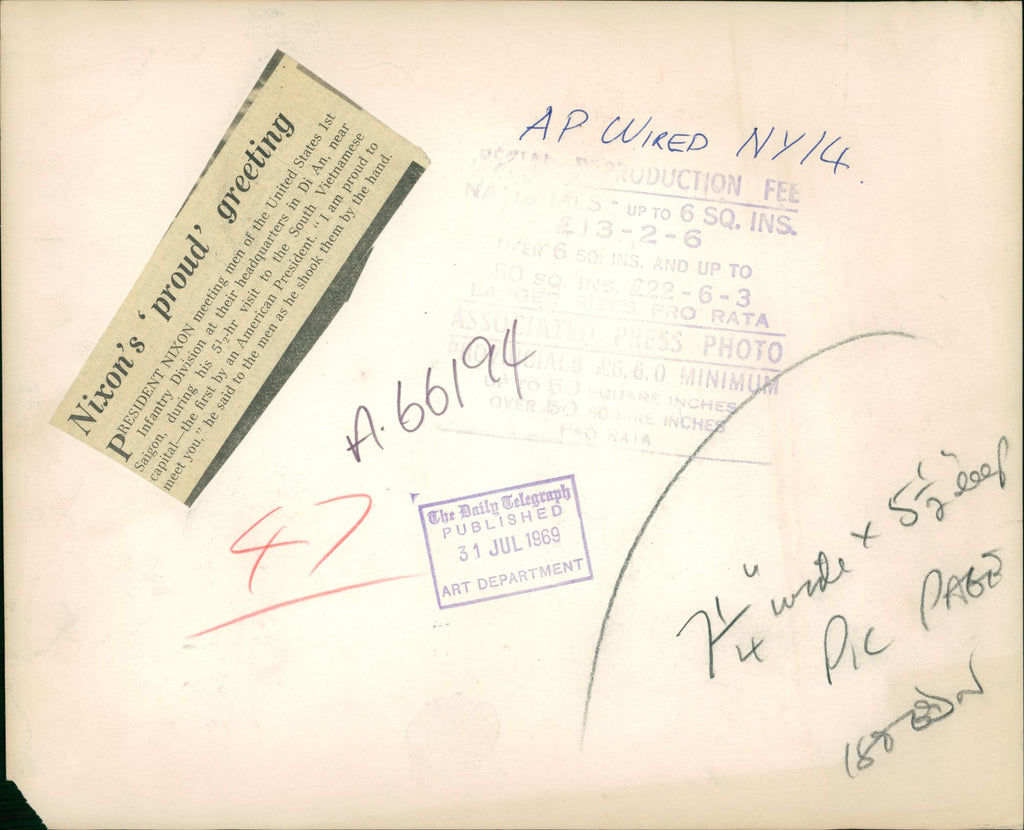 Nixon's ‘proud’ greeting
PRESIDENT NIXON meeting men of the United States 1st
Infantry Division at their headquarters in Di An, near
Saigon, during his 5½-hr visit to the South Vietnamese
capital—the first by an American President. “I am proud to
meet you,” he said to the men as he shook them by the hand.
AP WIRED NY14.
SPECIAL REPRODUCTION FEE
NATIONALS - UP TO 6 SQ. INS.
£13-2-6
OVER 6 SQ. INS. AND UP TO
50 SQ. INS. £22-6-3
LARGER SIZES PRO RATA
ASSOCIATED PRESS PHOTO
PROVINCIALS £0.6.0 MINIMUM
UP TO 50 SQUARE INCHES
OVER 50 SQUARE INCHES
PRO RATA
A.66194
47
The Daily Telegraph
PUBLISHED
31 JUL 1969
ART DEPARTMENT
7¼" wide x 5½" deep
PIC PAGE
1ST EDN